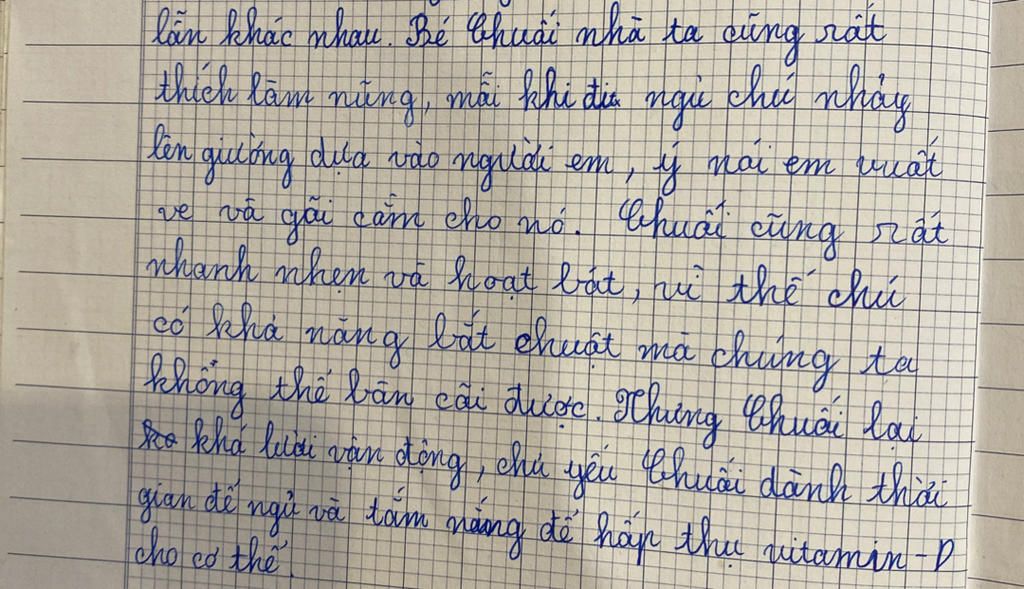 lẫn khác nhau. Bé Chuối nhà ta cũng rất
thích làm nũng, mỗi khi đi ngủ chú nhảy
lên giường dựa vào người em, ý nói em vuốt
ve và gãi cằm cho nó. Chuối cũng rất
nhanh nhẹn và hoạt bát, vì thế chú
có khả năng bắt chuột mà chúng ta
không thể bàn cãi được. Nhưng Chuối lại
khá lười vận động, chủ yếu Chuối dành thời
gian để ngủ và tắm nắng để hấp thụ vitamin-D
cho cơ thể.